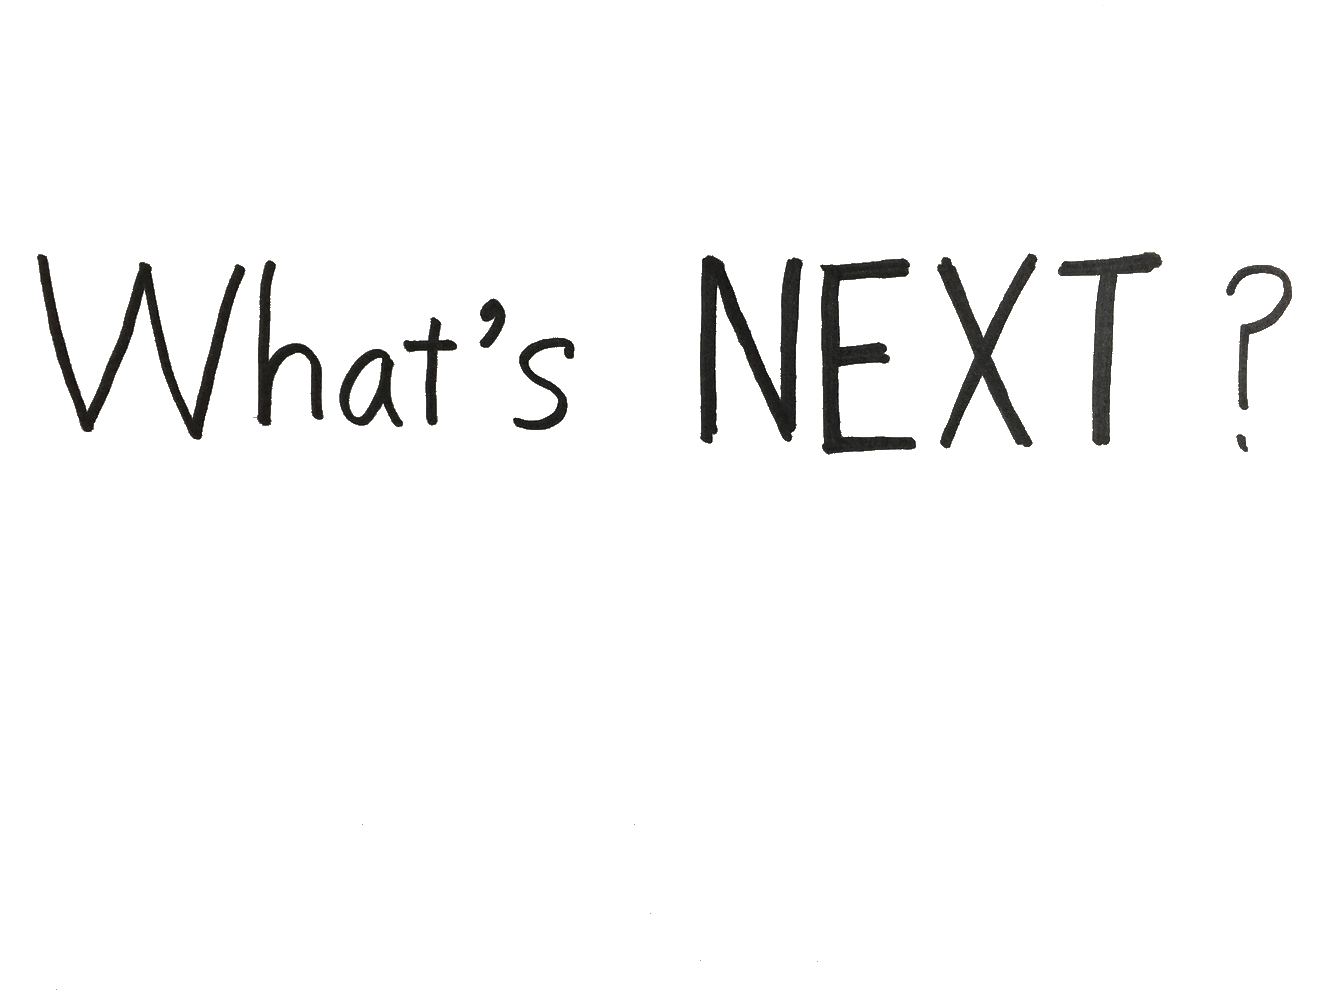 What's NEXT ?